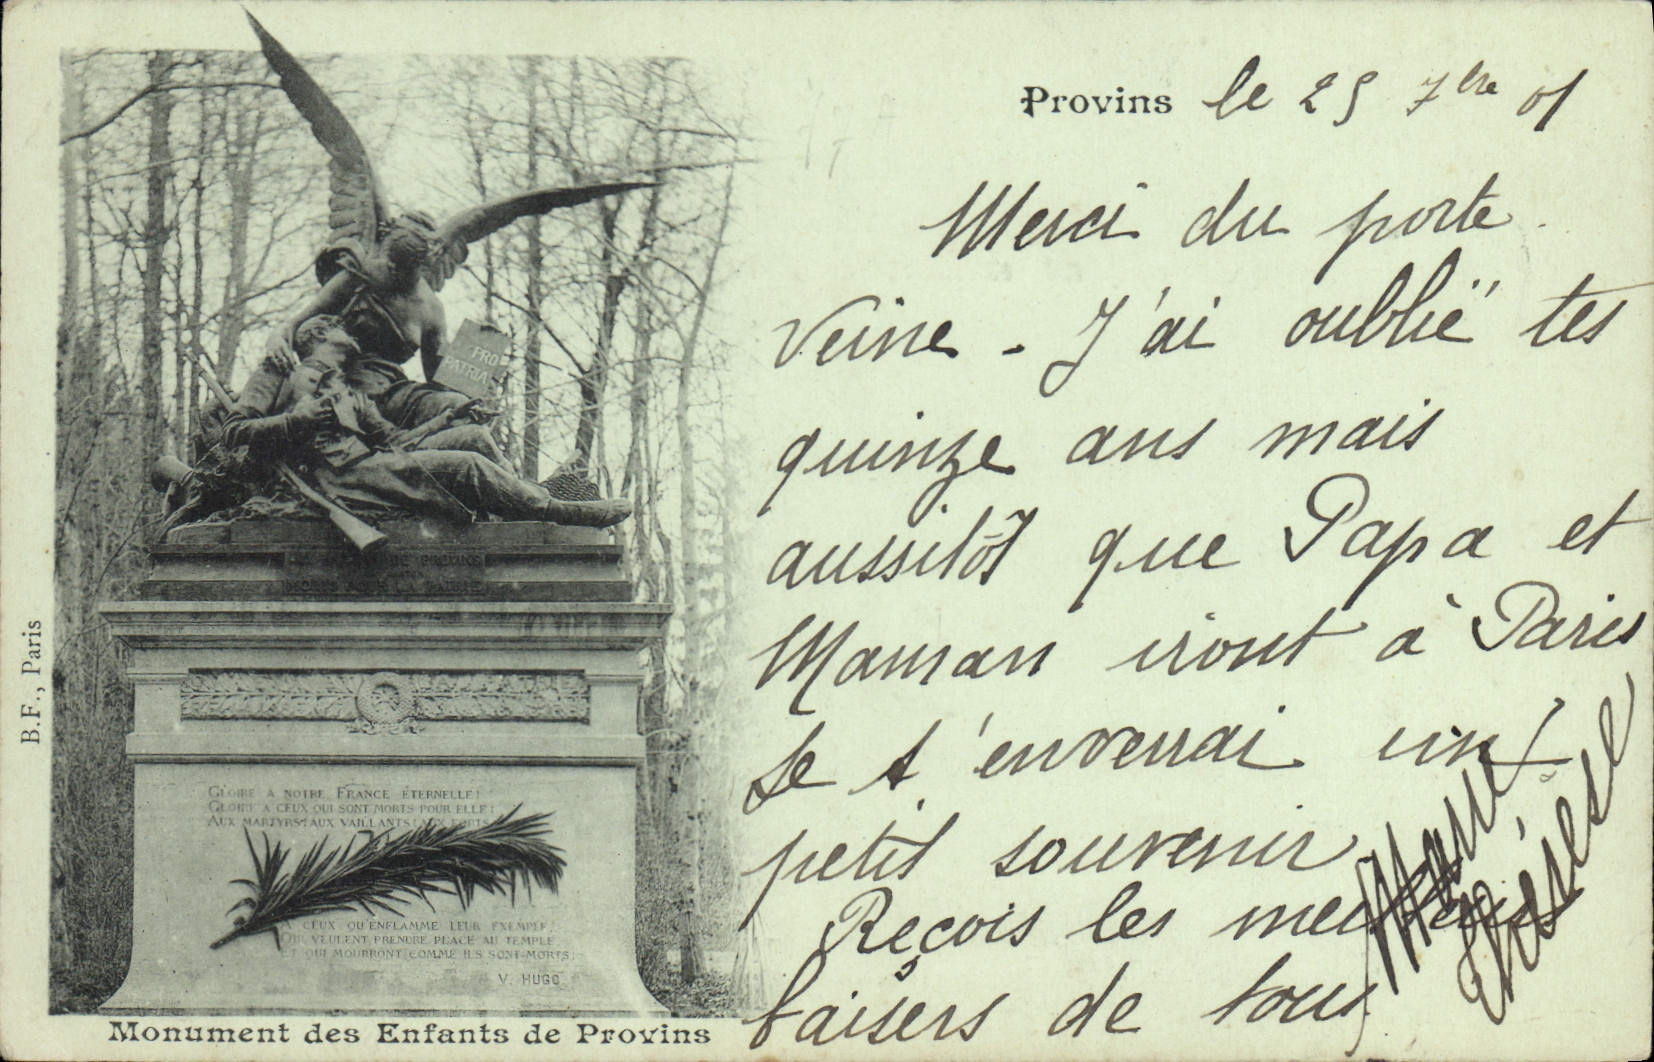 Provins le 25 7bre 01
Merci du porte
veine - J'ai oublié tes
quinze ans mais
aussitôt que Papa et
Maman iront à Paris
Je t'enverrai un
petit souvenir
Reçois les meilleurs
baisers de tous
Marie
Thérèse
PRO
PATRIA
GLOIRE A NOTRE FRANCE ÉTERNELLE!
GLOIRE A CEUX QUI SONT MORTS POUR ELLE!
AUX MARTYRS! AUX VAILLANTS! AUX FORTS
A CEUX QU'ENFLAMME LEUR EXEMPLE,
QUI VEULENT PRENDRE PLACE AU TEMPLE
ET QUI MOURRONT COMME ILS SONT MORTS!
V. HUGO
B.F., Paris
Monument des Enfants de Provins